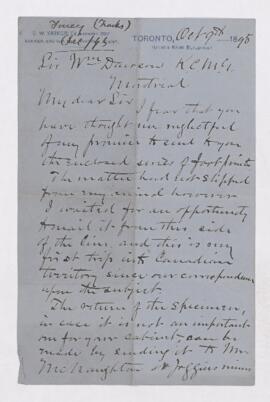 Dorcey (Charles)
TORONTO, Oct 9th 1895
Sir Wm Dawson K.C.M.G.
Montreal
My dear Sir
I fear that you
have thought me neglectful
of my promise to send to you
the enclosed series of foot prints
The matter had not slipped
from my mind however
I waited for an opportunity
to mail it from this side
of the line, and this is my
first trip into Canadian
territory since our correspondence
upon the subject.
The return of the specimen,
in case it is not an important
on for your cabinet, can be
made by sending it to Mr
McNaughton at Joggins mines